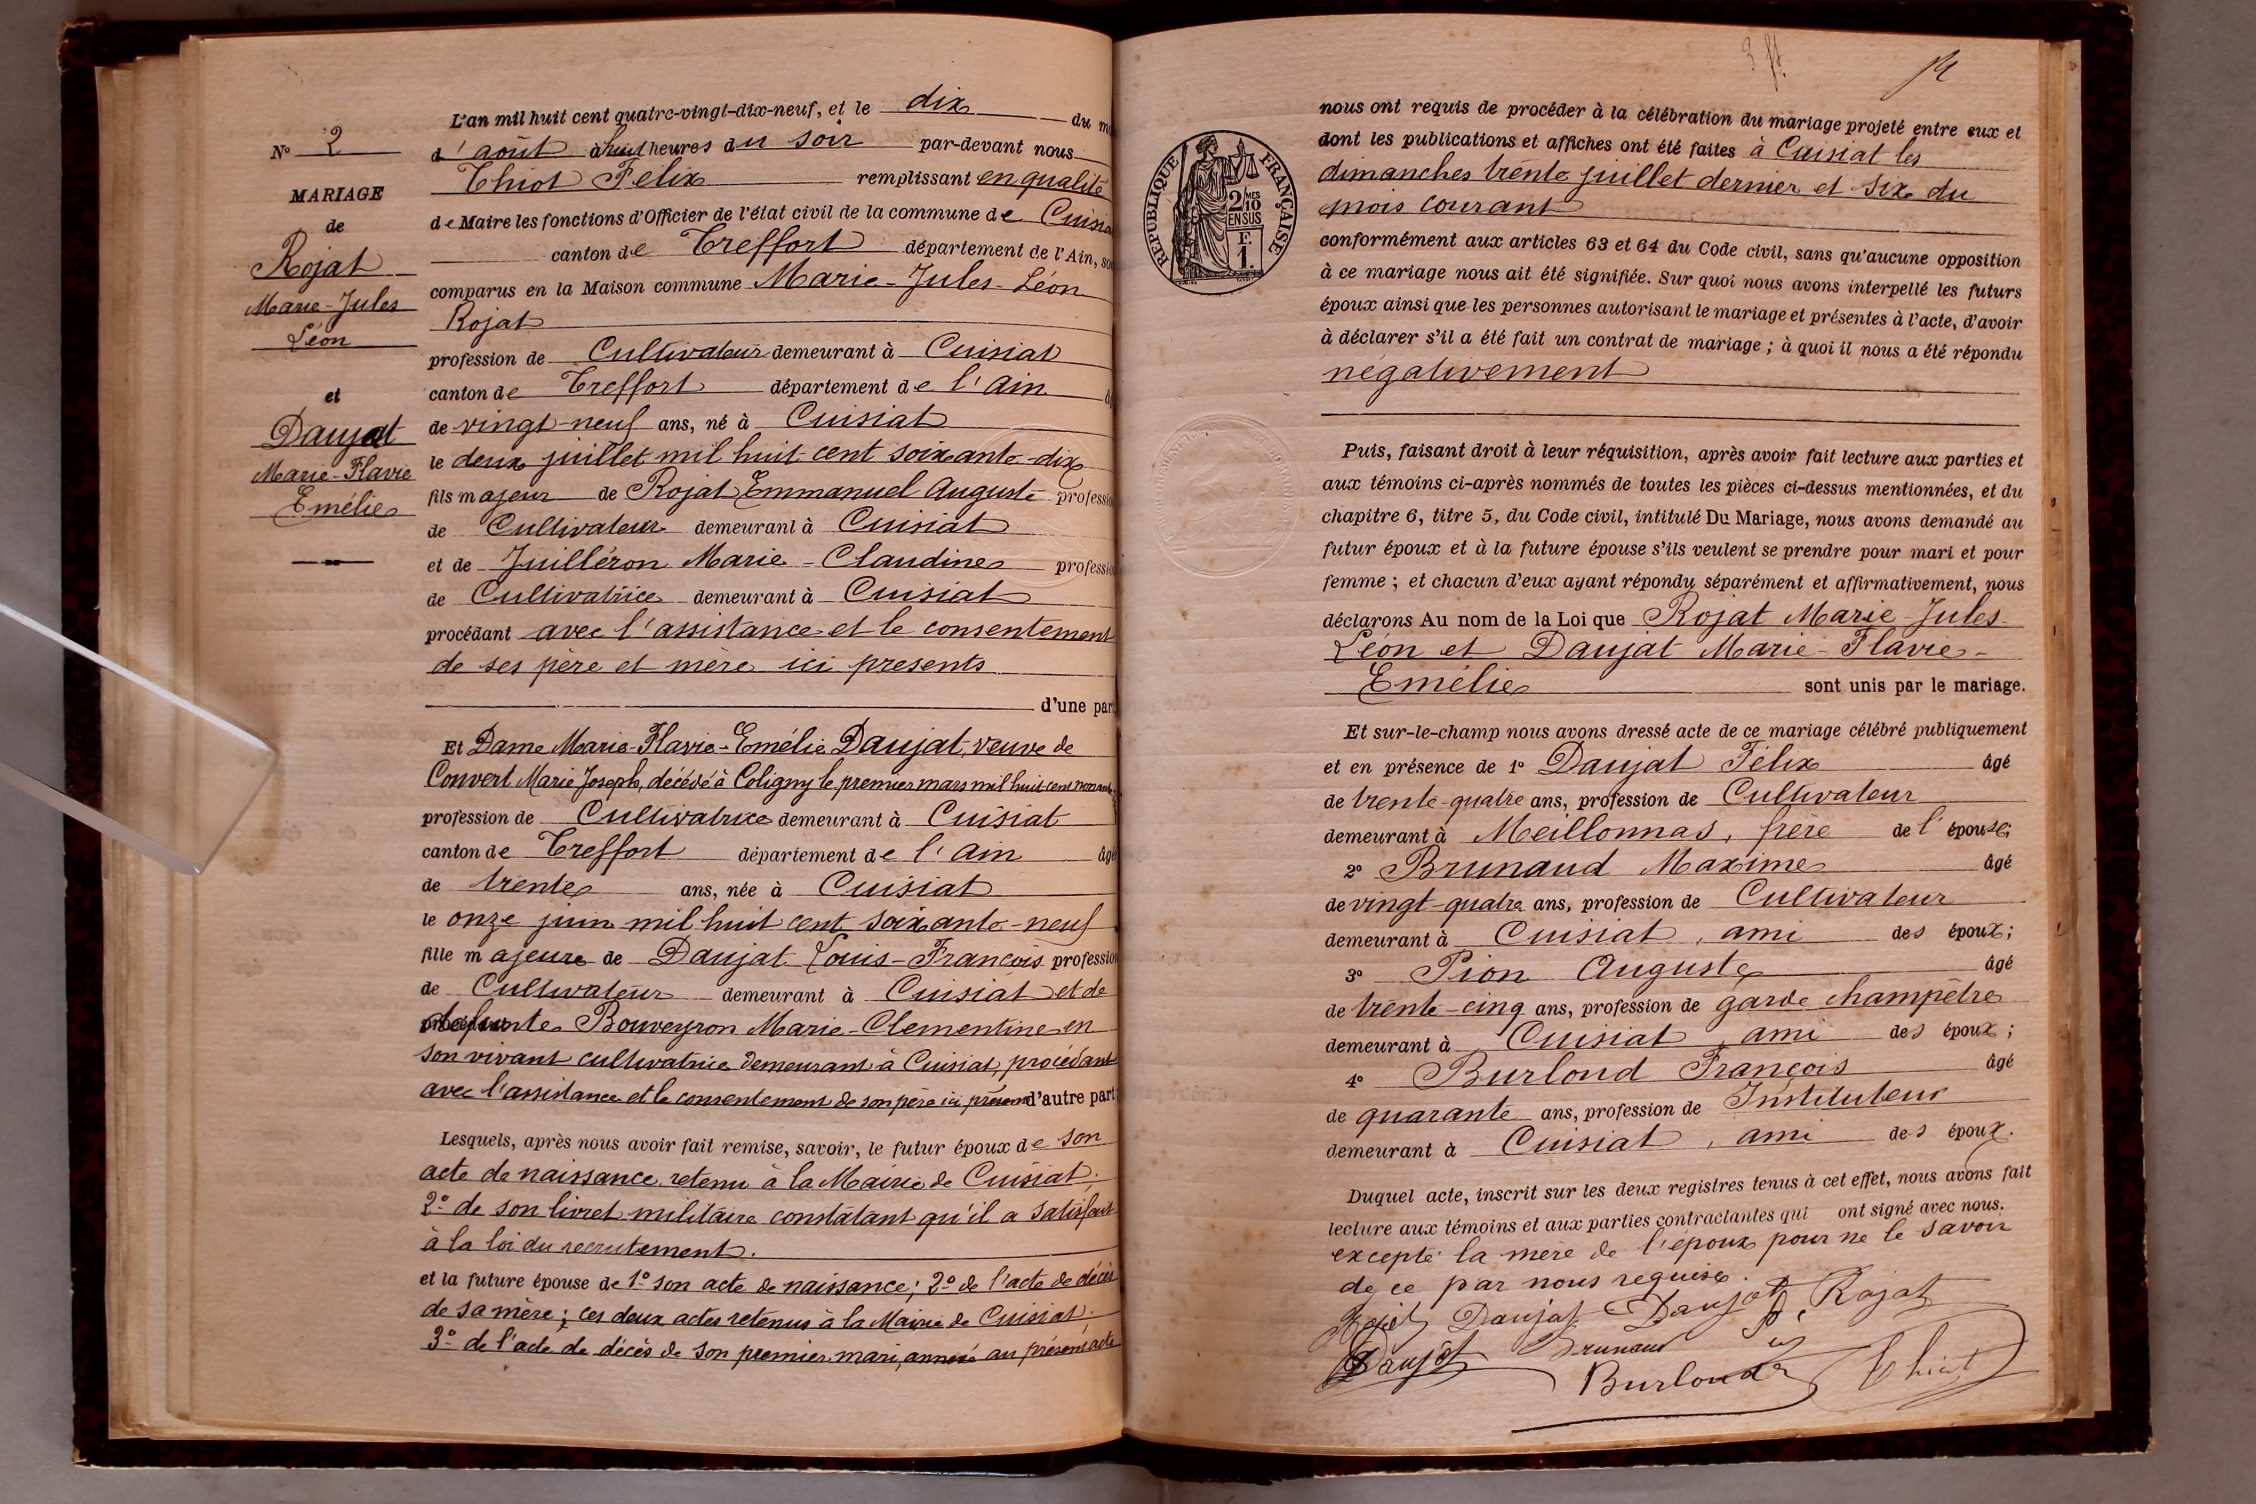 N° 2
MARIAGE
de
Rojat
Marie-Jules
Léon
et
Daujat
Marie-Flavie
Emélie
L'an mil huit cent quatre-vingt-dix-neuf, et le dix du m
d'août à huit heures du soir par-devant nous
Thiot Felix remplissant en qualité
de Maire les fonctions d'Officier de l'état civil de la commune de Cuisia
canton de Treffort département de l'Ain, so
comparus en la Maison commune Marie-Jules-Léon
Rojat
profession de Cultivateur demeurant à Cuisiat
canton de Treffort département de l'Ain
de vingt-neuf ans, né à Cuisiat
le deux juillet mil huit cent soixante-dix
fils majeur de Rojat Emmanuel Auguste professio
de Cultivateur demeurant à Cuisiat
et de Juilléron Marie-Claudine professio
de Cultivatrice demeurant à Cuisiat
procédant avec l'assistance et le consentement
de ses père et mère ici presents
d'une par
Et Dame Marie-Flavie-Emélie Daujat, veuve de
Convert Marie Joseph, décédé à Coligny le premier mars mil huit cent
profession de Cultivatrice demeurant à Cuisiat
canton de Treffort département de l'Ain âgé
de trente ans, née à Cuisiat
le onze juin mil huit cent soixante-neuf
fille majeure de Daujat Louis-François profession
de Cultivateur demeurant à Cuisiat et de
defunte Bouveyron Marie-Clementine en
son vivant cultivatrice demeurant à Cuisiat, procédant
avec l'assistance et le consentement de son père ici présent d'autre part
Lesquels, après nous avoir fait remise, savoir, le futur époux de son
acte de naissance retenu à la Mairie de Cuisiat;
2° de son livret militaire constatant qu'il a satisfait
à la loi du recrutement.
et la future épouse de 1° son acte de naissance; 2° de l'acte de décès
de sa mère; ces deux actes retenus à la Mairie de Cuisiat;
3° de l'acte de décès de son premier mari, annexé au présent acte
RÉPUBLIQUE FRANÇAISE
2/10 MES
EN SUS
F.
1.
nous ont requis de procéder à la célébration du mariage projeté entre eux et
dont les publications et affiches ont été faites à Cuisiat les
dimanches trente juillet dernier et six du
mois courant
conformément aux articles 63 et 64 du Code civil, sans qu'aucune opposition
à ce mariage nous ait été signifiée. Sur quoi nous avons interpellé les futurs
époux ainsi que les personnes autorisant le mariage et présentes à l'acte, d'avoir
à déclarer s'il a été fait un contrat de mariage; à quoi il nous a été répondu
négativement
Puis, faisant droit à leur réquisition, après avoir fait lecture aux parties et
aux témoins ci-après nommés de toutes les pièces ci-dessus mentionnées, et du
chapitre 6, titre 5, du Code civil, intitulé Du Mariage, nous avons demandé au
futur époux et à la future épouse s'ils veulent se prendre pour mari et pour
femme; et chacun d'eux ayant répondu séparément et affirmativement, nous
déclarons Au nom de la Loi que Rojat Marie-Jules-
Léon et Daujat Marie-Flavie-
Emélie sont unis par le mariage.
Et sur-le-champ nous avons dressé acte de ce mariage célébré publiquement
et en présence de 1° Daujat Félix âgé
de trente-quatre ans, profession de Cultivateur
demeurant à Meillonnas, frère de l'épouse;
2° Brunaud Maxime âgé
de vingt-quatre ans, profession de Cultivateur
demeurant à Cuisiat, ami des époux;
3° Pion Auguste âgé
de trente-cinq ans, profession de garde champêtre
demeurant à Cuisiat, ami des époux;
4° Burlond François âgé
de quarante ans, profession de Instituteur
demeurant à Cuisiat, ami des époux.
Duquel acte, inscrit sur les deux registres tenus à cet effet, nous avons fait
lecture aux témoins et aux parties contractantes qui ont signé avec nous.
excepté la mère de l'époux pour ne le savoir
de ce par nous requise.
Rojat Daujat Daujat Rojat
Daujat Brunaud
Burlond Thiot